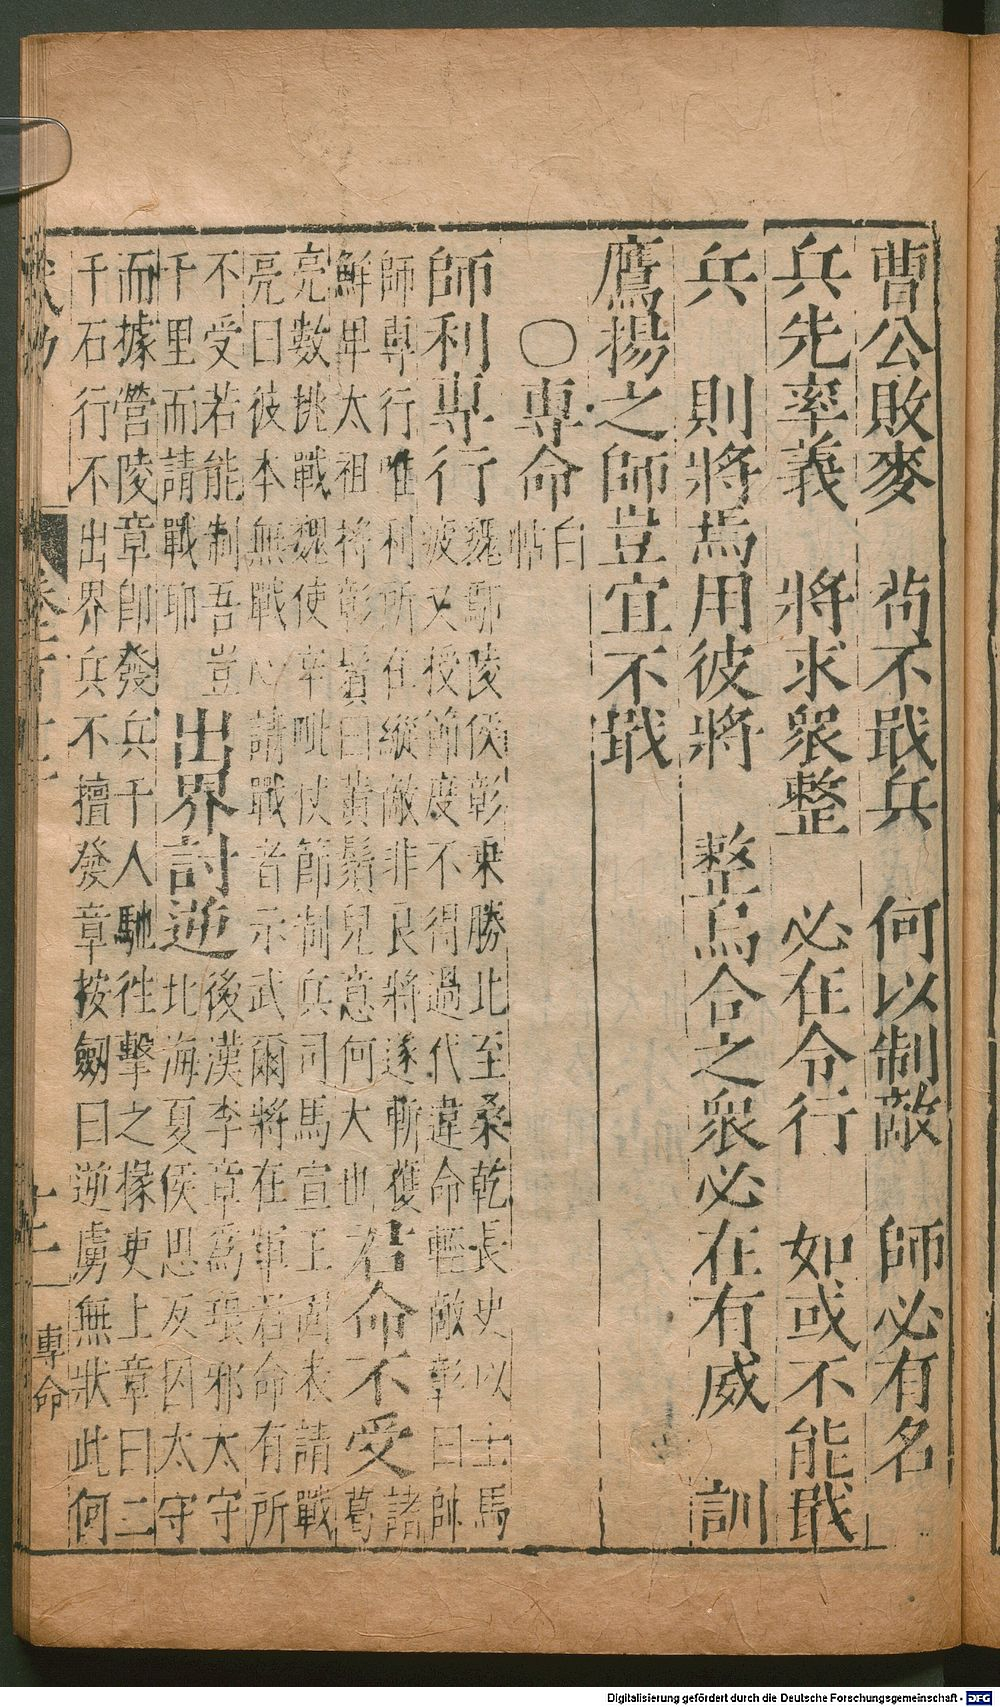 曹公敗麥　苟不戢兵　何以制敵　師必有名
兵先率義　將求衆整　必在令行　如或不能戢
兵　則將焉用彼將　整烏合之衆必在有威　訓
鷹揚之師豈宜不戢
○專命白帖
師利專行魏鄢陵侯彰乘勝北至桑乾長史以士馬
疲又授節度不得過代違命輕敵彰曰帥
師專行唯利所在縱敵非良將遂斬獲
鮮卑太祖將彰鬚曰黃鬚兒意何大也君命不受諸
葛
亮數挑戰魏使辛毗仗節制兵司馬宣王固表請戰
亮曰彼本無戰心請戰者示武爾將在軍君命有所
不受若能制吾豈
千里而請戰耶出界討逆後漢李章爲琅邪太守
北海夏侯思反囚太守
而據營陵章即發兵千人馳徃擊之掾吏上章曰二
千石行不出界兵不擅發章按劒曰逆虜無狀此何
專命
Digitalisierung gefördert durch die Deutsche Forschungsgemeinschaft - DFG